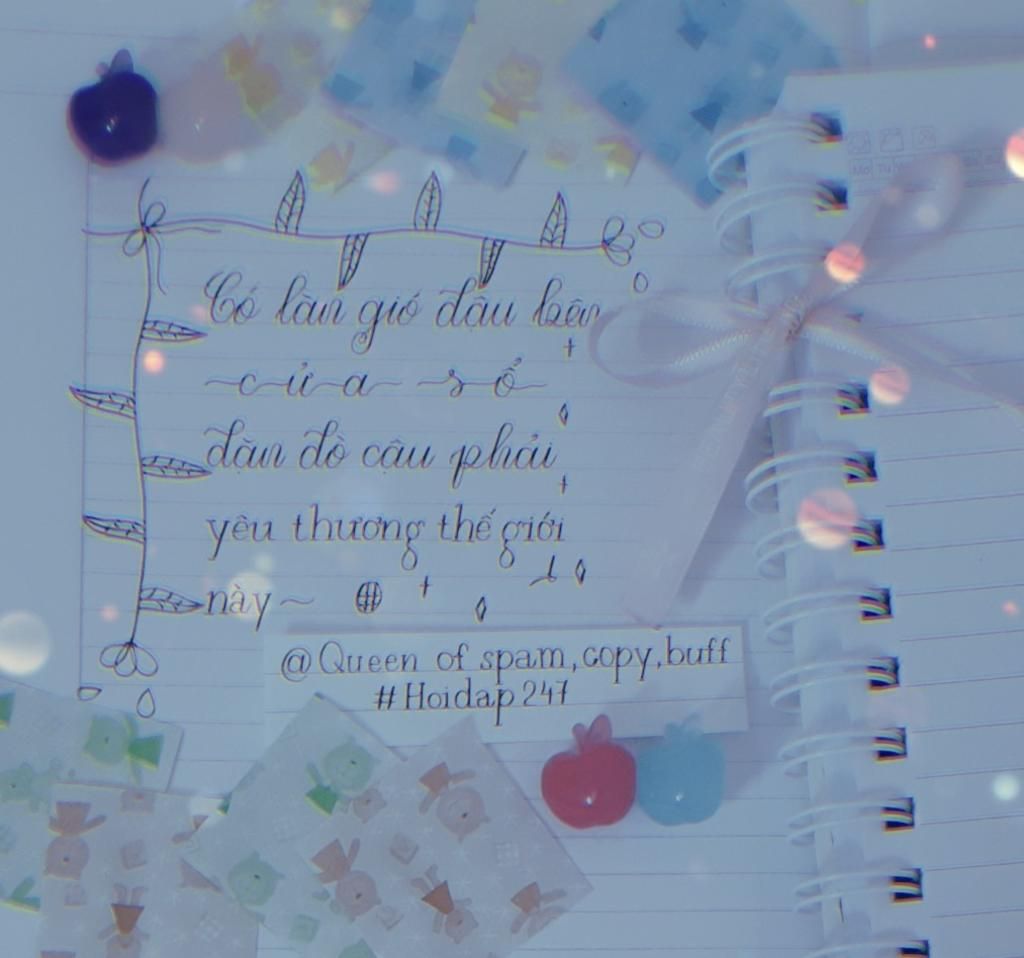 Có làn gió đậu bên
cửa sổ
dặn dò cậu phải
yêu thương thế giới
này ~
@Queen of spam,copy,buff
#Hoidap247